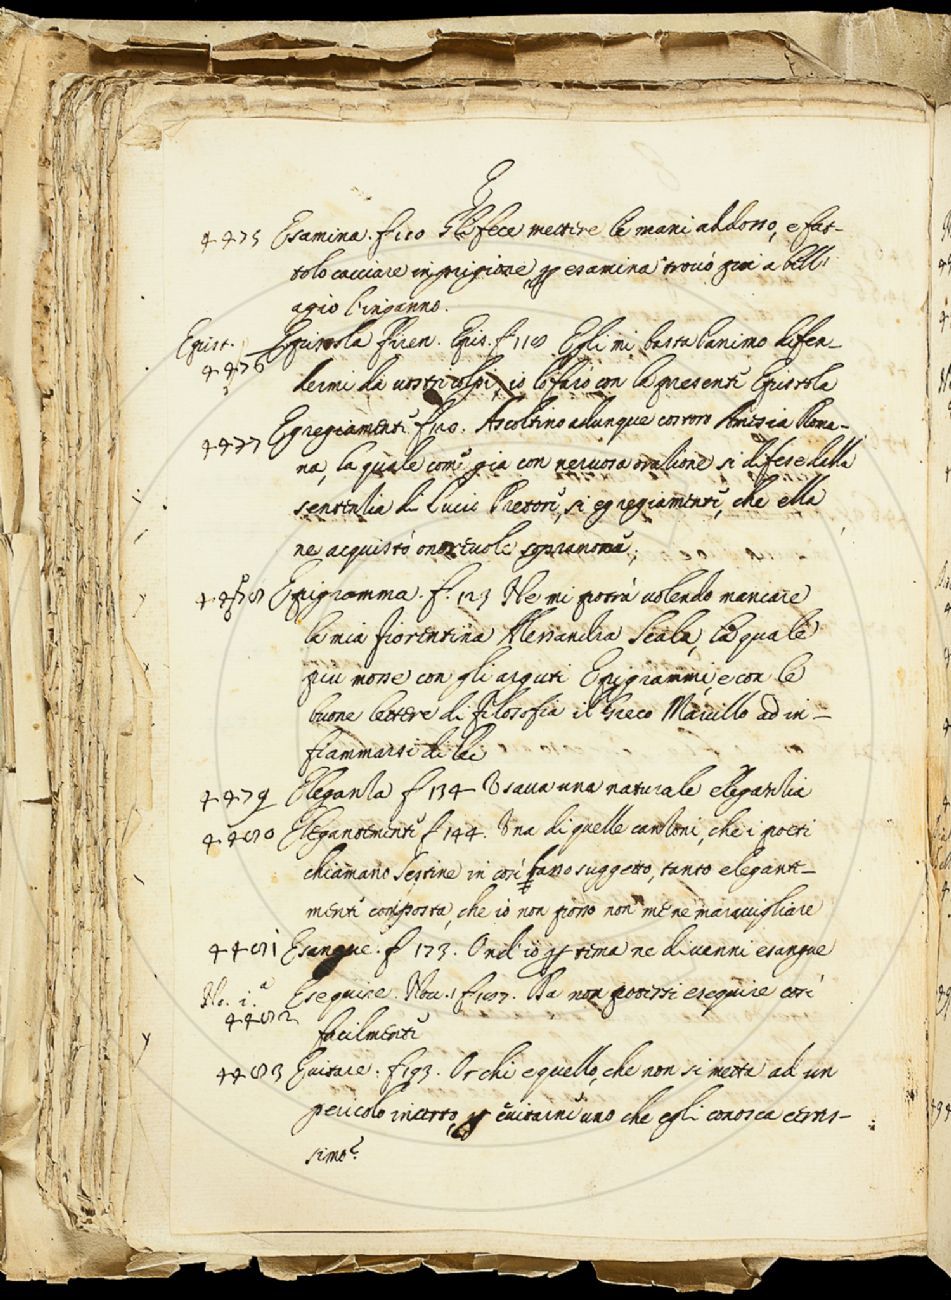 E
4475 Esamina. f 120 Gli fece mettere le mani addosso, e fat-
tolo cacciare in prigione ꝑ esamina trovò poi a bell'
agio l'inganno.
Epist. Epistola Firen. Epis. f 118 Egli mi basta l'animo difen-
4476 dermi da vostri colpi, io lo farò con la presente Epistola
4477 Egregiamente f 120. Ascoltino adunque costoro Amesia Roma-
na, la quale come già con nervosa oratione si difese dalla
sententia di Lucio Pretore, si egregiamente, che ella
ne acquistò onorevole sopranome,
4478 Epigramma. f. 123 Ne mi potrà volendo mancare
la mia fiorentina Alessandra Scala, la quale
più mosse con gli arguti Epigrammi, e con le
buone lettere di filosofia il Greco Marullo ad in-
fiammarsi di lei
4479 Eleganza f 134 Usava una naturale elegantia
4480 Elegantemente f 144. Una di quelle canzoni, che i poeti
chiamano Sestine in così basso suggetto, tanto elegante-
mente composta, che io non posso non me ne maravigliare
4481 Esangue. f 173. Ond' io ꝑ tema ne divenni esangue
No. 1.ª Eseguire. Nov. 1 f 187. Ma non potersi eseguire così
4482 facilmente
4483 Evitare. f 193. Or chi è quello, che non si metta ad un
pericolo incerto, ꝑ evitarne uno che egli conosca certis-
simo?